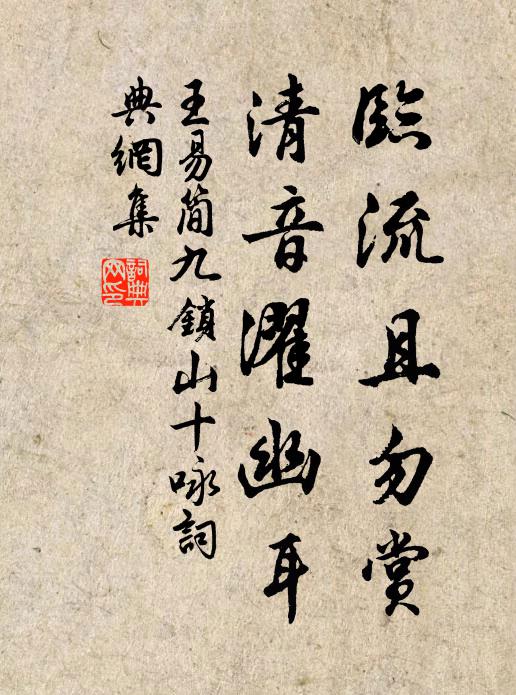 臨流且勿賞
清音濯幽耳
王易簡九鎖山十咏詞
典網集
詞典網印